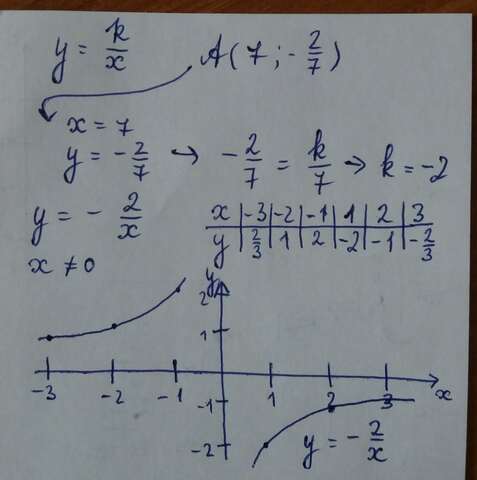 y = k/x A(7; -2/7)
x = 7
y = -2/7 → -2/7 = k/7 → k = -2
y = - 2/x
x | -3 | -2 | -1 | 1 | 2 | 3
y | 2/3 | 1 | 2 | -2 | -1 | -2/3
x ≠ 0
y
2
1
-3 -2 -1 1 2 3 x
-1
-2
y = - 2/x